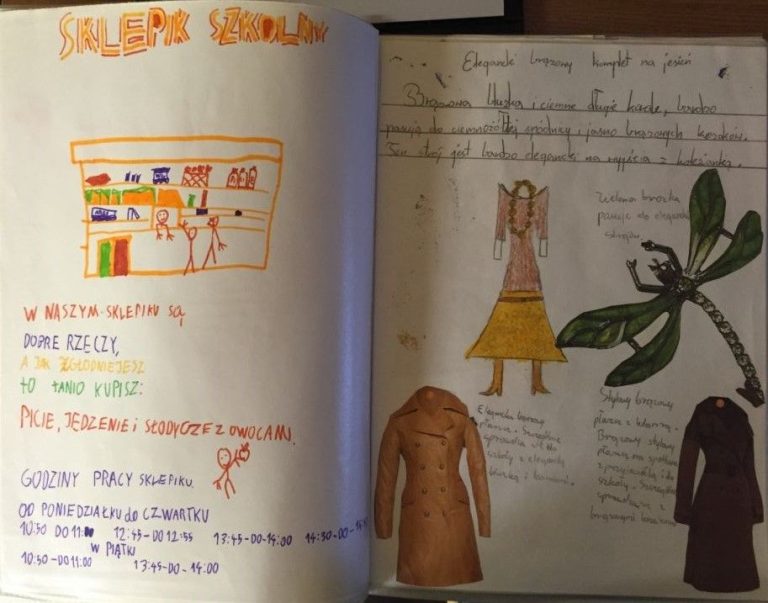 SKLEPIK SZKOLNY
W NASZYM SKLEPIKU SĄ
DOBRE RZECZY,
A JAK ZGŁODNIEJESZ
TO TANIO KUPISZ:
PICIE, JEDZENIE i SŁODYCZE Z OWOCAMI.
GODZINY PRACY SKLEPIKU
OD PONIEDZIAŁKU do CZWARTKU
10:50 DO 11:00 12:45-DO 12:55 13:45-DO-14:00 14:30-DO-
W PIĄTKI
10:50-DO 11:00 13:45-DO-14:00
Elegancki brązowy komplet na jesień
Brązowa bluzka i ciemne długie korale, bardzo
pasują do ciemnożółtej spódnicy i jasno brązowych kozaków.
Ten strój jest bardzo elegancki na wyjścia z koleżanką.
Zielona broszka
pasuje do eleganckich
strojów.
Elegancki brązowy
płaszcz. Szczególnie
sprawdza się do
szkoły z elegancką
bluzką i
Stylowy brązowy
płaszcz z klamrą.
Brązowy stylowy
płaszcz na spotkanie
z przyjaciółką i do
szkoły. Szczególnie
sprawdza się z
brązowymi